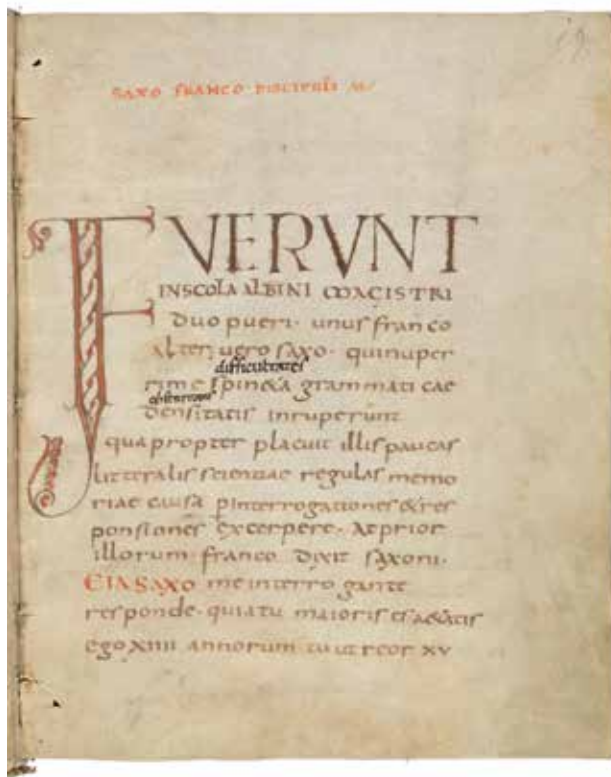 SAXO FRANCO DISCIPULIS
FUERUNT
IN SCOLA ALBINI MAGISTRI
duo pueri. unus franco
alter uero saxo. qui nuper
difficultates
rime spineta grammaticae
densitatis inruperunt
quapropter placuit illis paucas
litteralis scientiae regulas memo
riae causa p interrogationes & res
ponsiones excerpere. At prior
illorum. franco dixit saxoni.
EIA SAXO me interrogante
responde. quia tu maioris es aetatis
ego XIIII annorum tu ut reor XV